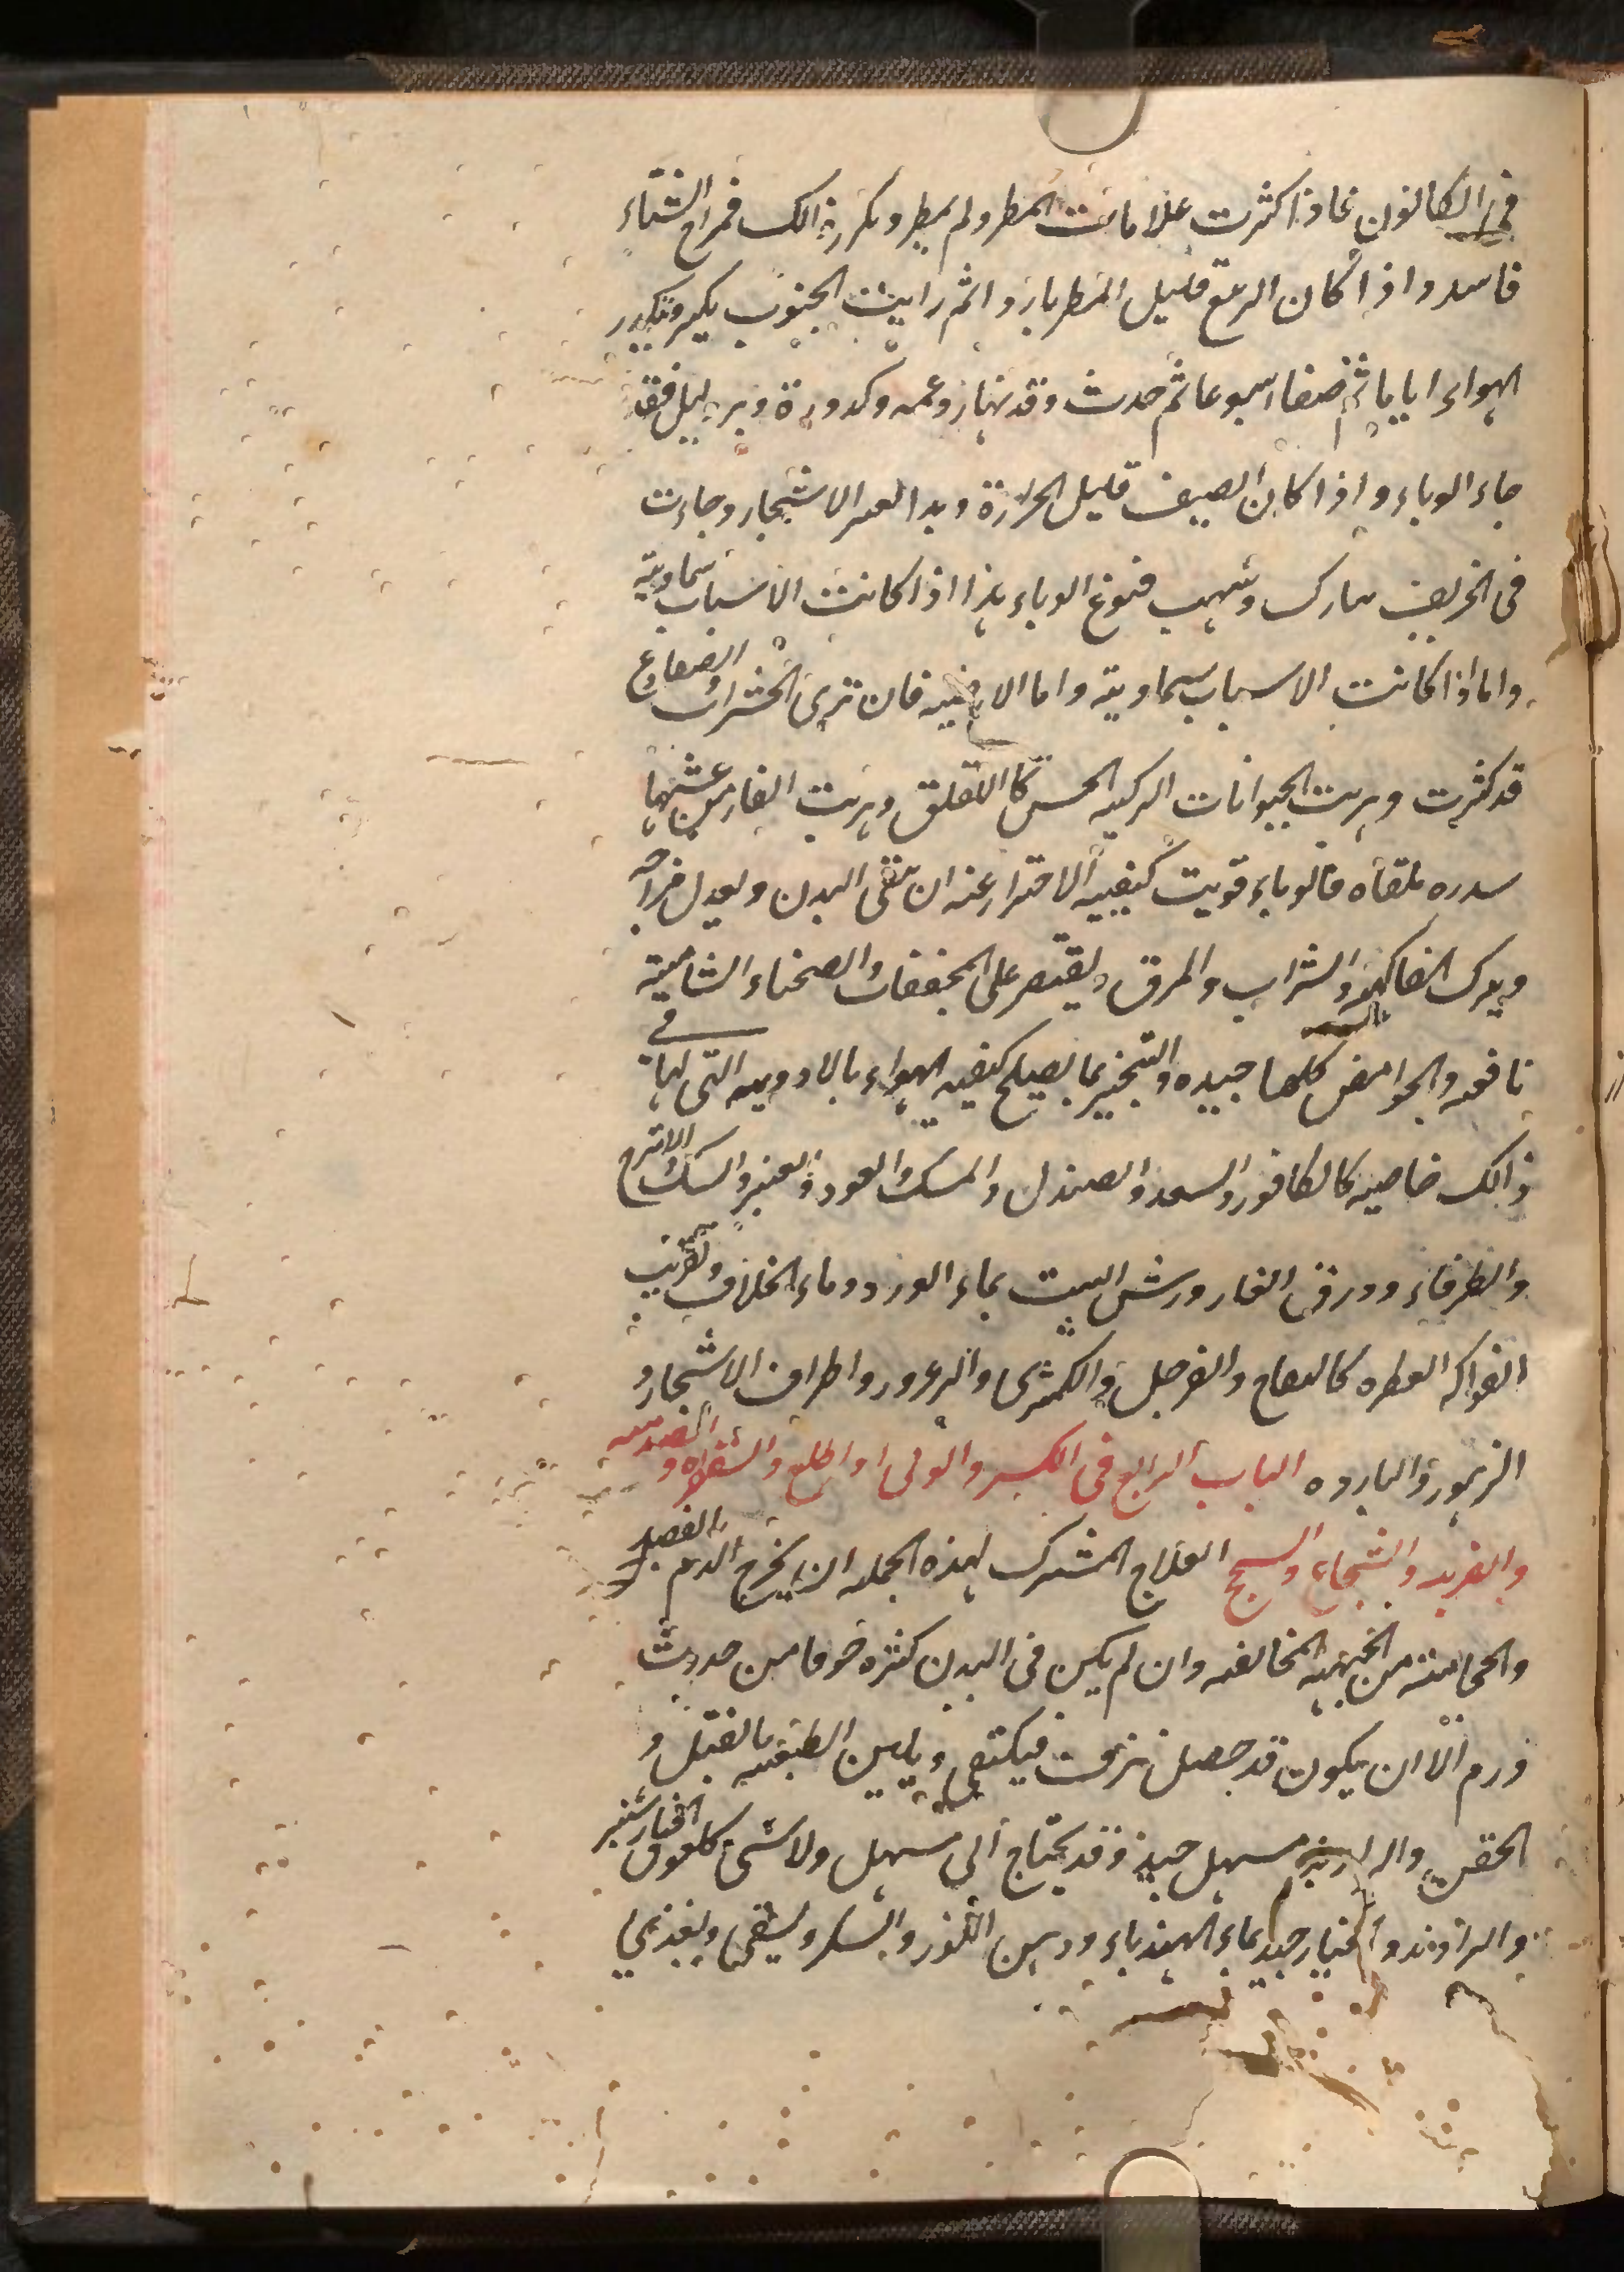 فى الكانون فاذا كثرت علامات المطر ولم يمطر وتكرر ذالك فمزاج الشتاء
فاسد واذا كان الربيع قليل المطر باردا ثم رايت الجنوب يكثر وتكدر
الهواء اياما ثم صفا اسبوعا ثم حدث وقد نهار وغمه وكدورة وبرد ليل فقد
جاء الوباء واذا كان الصيف قليل الحرارة وبدا الاشجار وجاءت
فى الخريف نيازك وشهب فنوع الوباء هذا اذا كانت الاسباب سماوية
واما اذا كانت الاسباب سماوية واما الارضية فان ترى الحشرات والضفادع
قد كثرت وهربت الحيوانات الزكيه الحس كاللقلق وهربت الفار من عشها
سدره ملقاه فالوباء قويت كيفييه الاحتراز عنه ان تنقى البدن ويعدل مزاجه
ويترك الفاكهة والشراب والمرق ويقتصر على المجففات والصحناء الشامية
نافعه والحوامض كلها جيده والتبخير بما يصلح كيفيه الهواء بالادوييه التى لها فى
ذالك خاصيه كالكافور والسعد والصندل والمسك والعود والعنبر والسك الاترج
والطرفاء وورق الغار ورش البيت بماء الورد وماء الخلاف وتقريب
الفواكه العطره كالتفاح والسفرجل والكمثرى والزعرور واطراف الاشجار و
الزهور والبارده الباب الرابع فى الكسر والوثى او الخلع والسقطه و الصدمه
والضربه والشجاج والسحج العلاج المشترك لهذه الجمله ان يخرج الدم بالفصد
والحجامته من الجهته المخالفه وان لم يكن فى البدن كثره خوفا من حدوث
ورم الّا ان يكون قد حصل نزف فيكتفى ويلين الطبيعه بالفتل و
الحقن والراوند مسهل جيد وقد يحتاج الى مسهل ولا شىء كلعوق الخيارشنبر
والراوند والخيار جيد بماء الهندباء ودهن اللوز والسكر ويسقى ويغذى